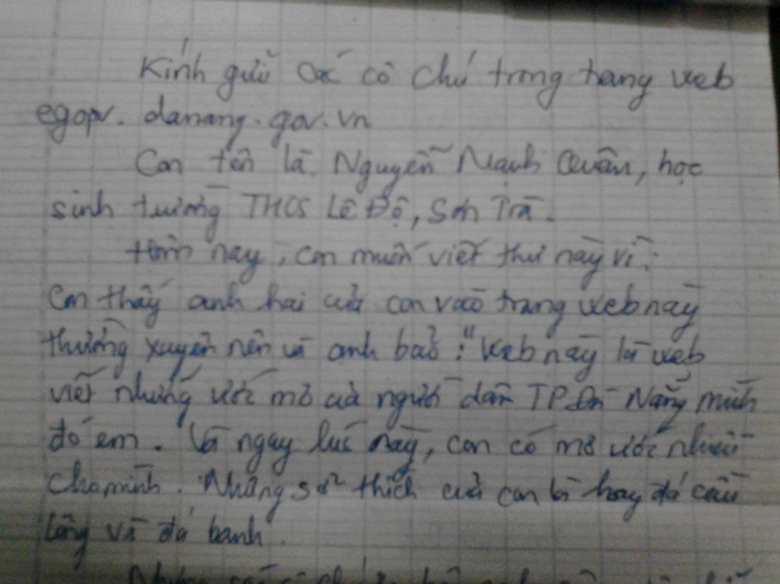 Kính gửi các cô chú trong trang web
egopv.danang.gov.vn
Con tên là Nguyễn Mạnh Quân, học
sinh trường THCS Lê Độ, Sơn Trà.
Hôm nay, con muốn viết thư này vì:
Con thấy anh hai của con vào trang web này
thường xuyên nên và anh bảo: "Web này là web
viết những ước mơ của người dân TP Đà Nẵng mình
đó em. Và ngay lúc này, con có mơ ước nhiều
cho mình. Những sở thích của con là hay đá cầu
lông và đá banh.